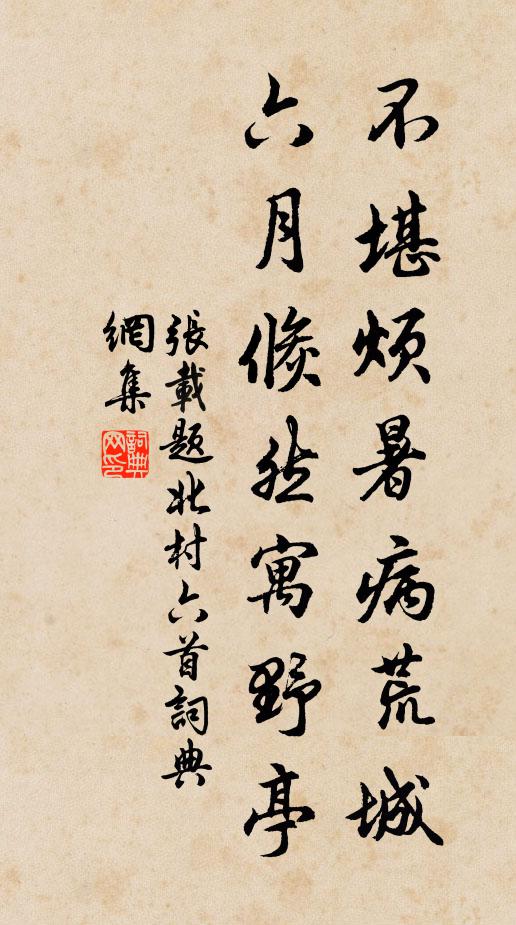 不堪煩暑病荒城
六月倏然寓野亭
張載題北村六首詞典
網集
詞典
网印